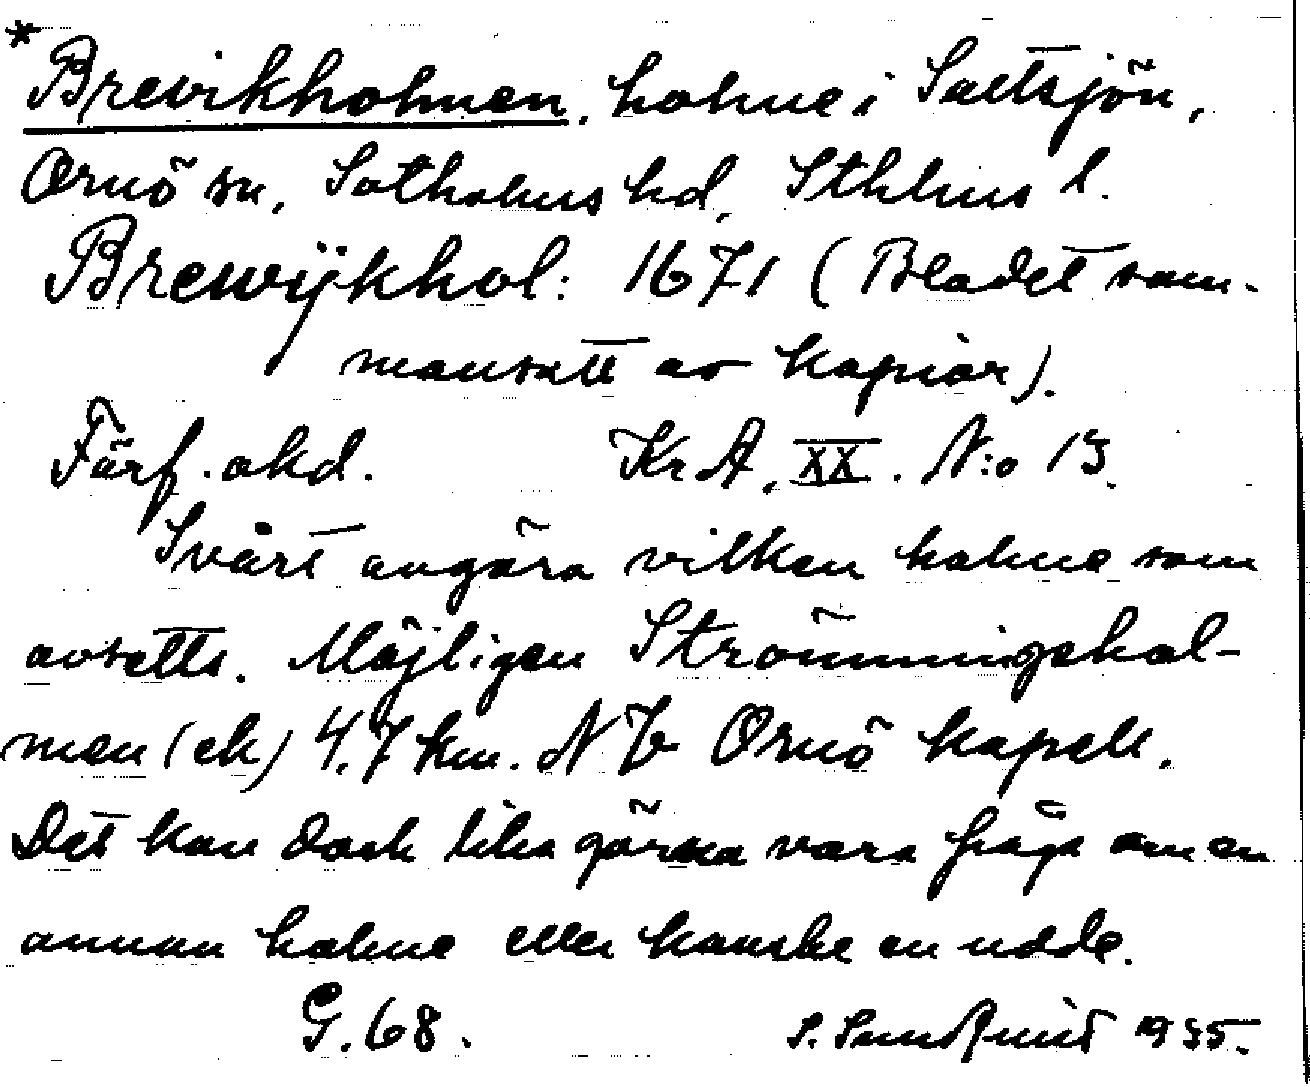 *Brevikholmen, holme i Saltsjön,
Ornö sn, Sotholms hd, Sthlms l.
Brewijkhol: 1671 (Bladet sam-
mansatt av kopior).
Förf. okd. KrA, XX. N:o 13.
Svårt avgöra vilken holme som
avsetts. Möjligen Strömmingshol-
men (ek) 4,7 km. NV Ornö kapell.
Det kan dock lika gärna vara fråga om en
annan holme eller kanske en udde.
G. 68. S. Sundquist 1935.